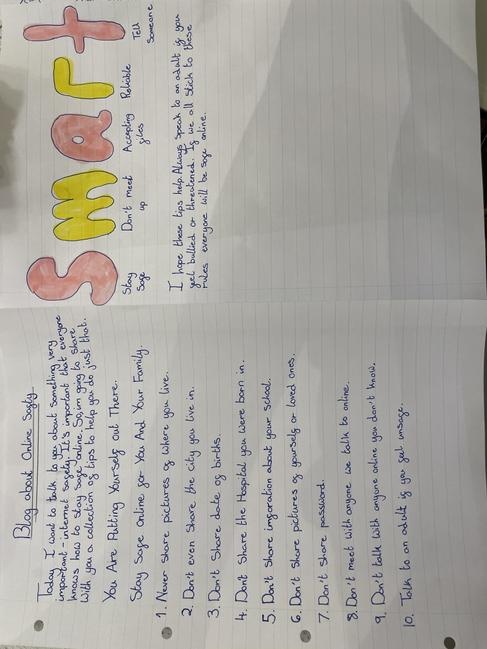 Blog about Online Safety
Today I want to talk to you about something very
important - internet safety. It's important that everyone
knows how to stay safe online. So im going to share
with you a collection of tips to help you do just that.
You Are Putting Yourself out There.
Stay Safe Online for You And Your Family.
1. Never share pictures of where you live.
2. Don't even share the city you live in.
3. Don't share date of births.
4. Dont Share the Hospital you were born in.
5. Don't share inforation about your school.
6. Don't share pictures of yourself or loved ones.
7. Don't share password.
8. Don't meet with anyone we talk to online.
9. Don't talk with anyone online you don't know.
10. Talk to an adult if you feel unsafe.
Smart
Stay Safe
Don't meet up
Accepting files
Reliable
Tell Someone
I hope these tips help. Always speak to an adult if you
get bullied or threatened. If we all stick to these
rules everyone will be safe online.